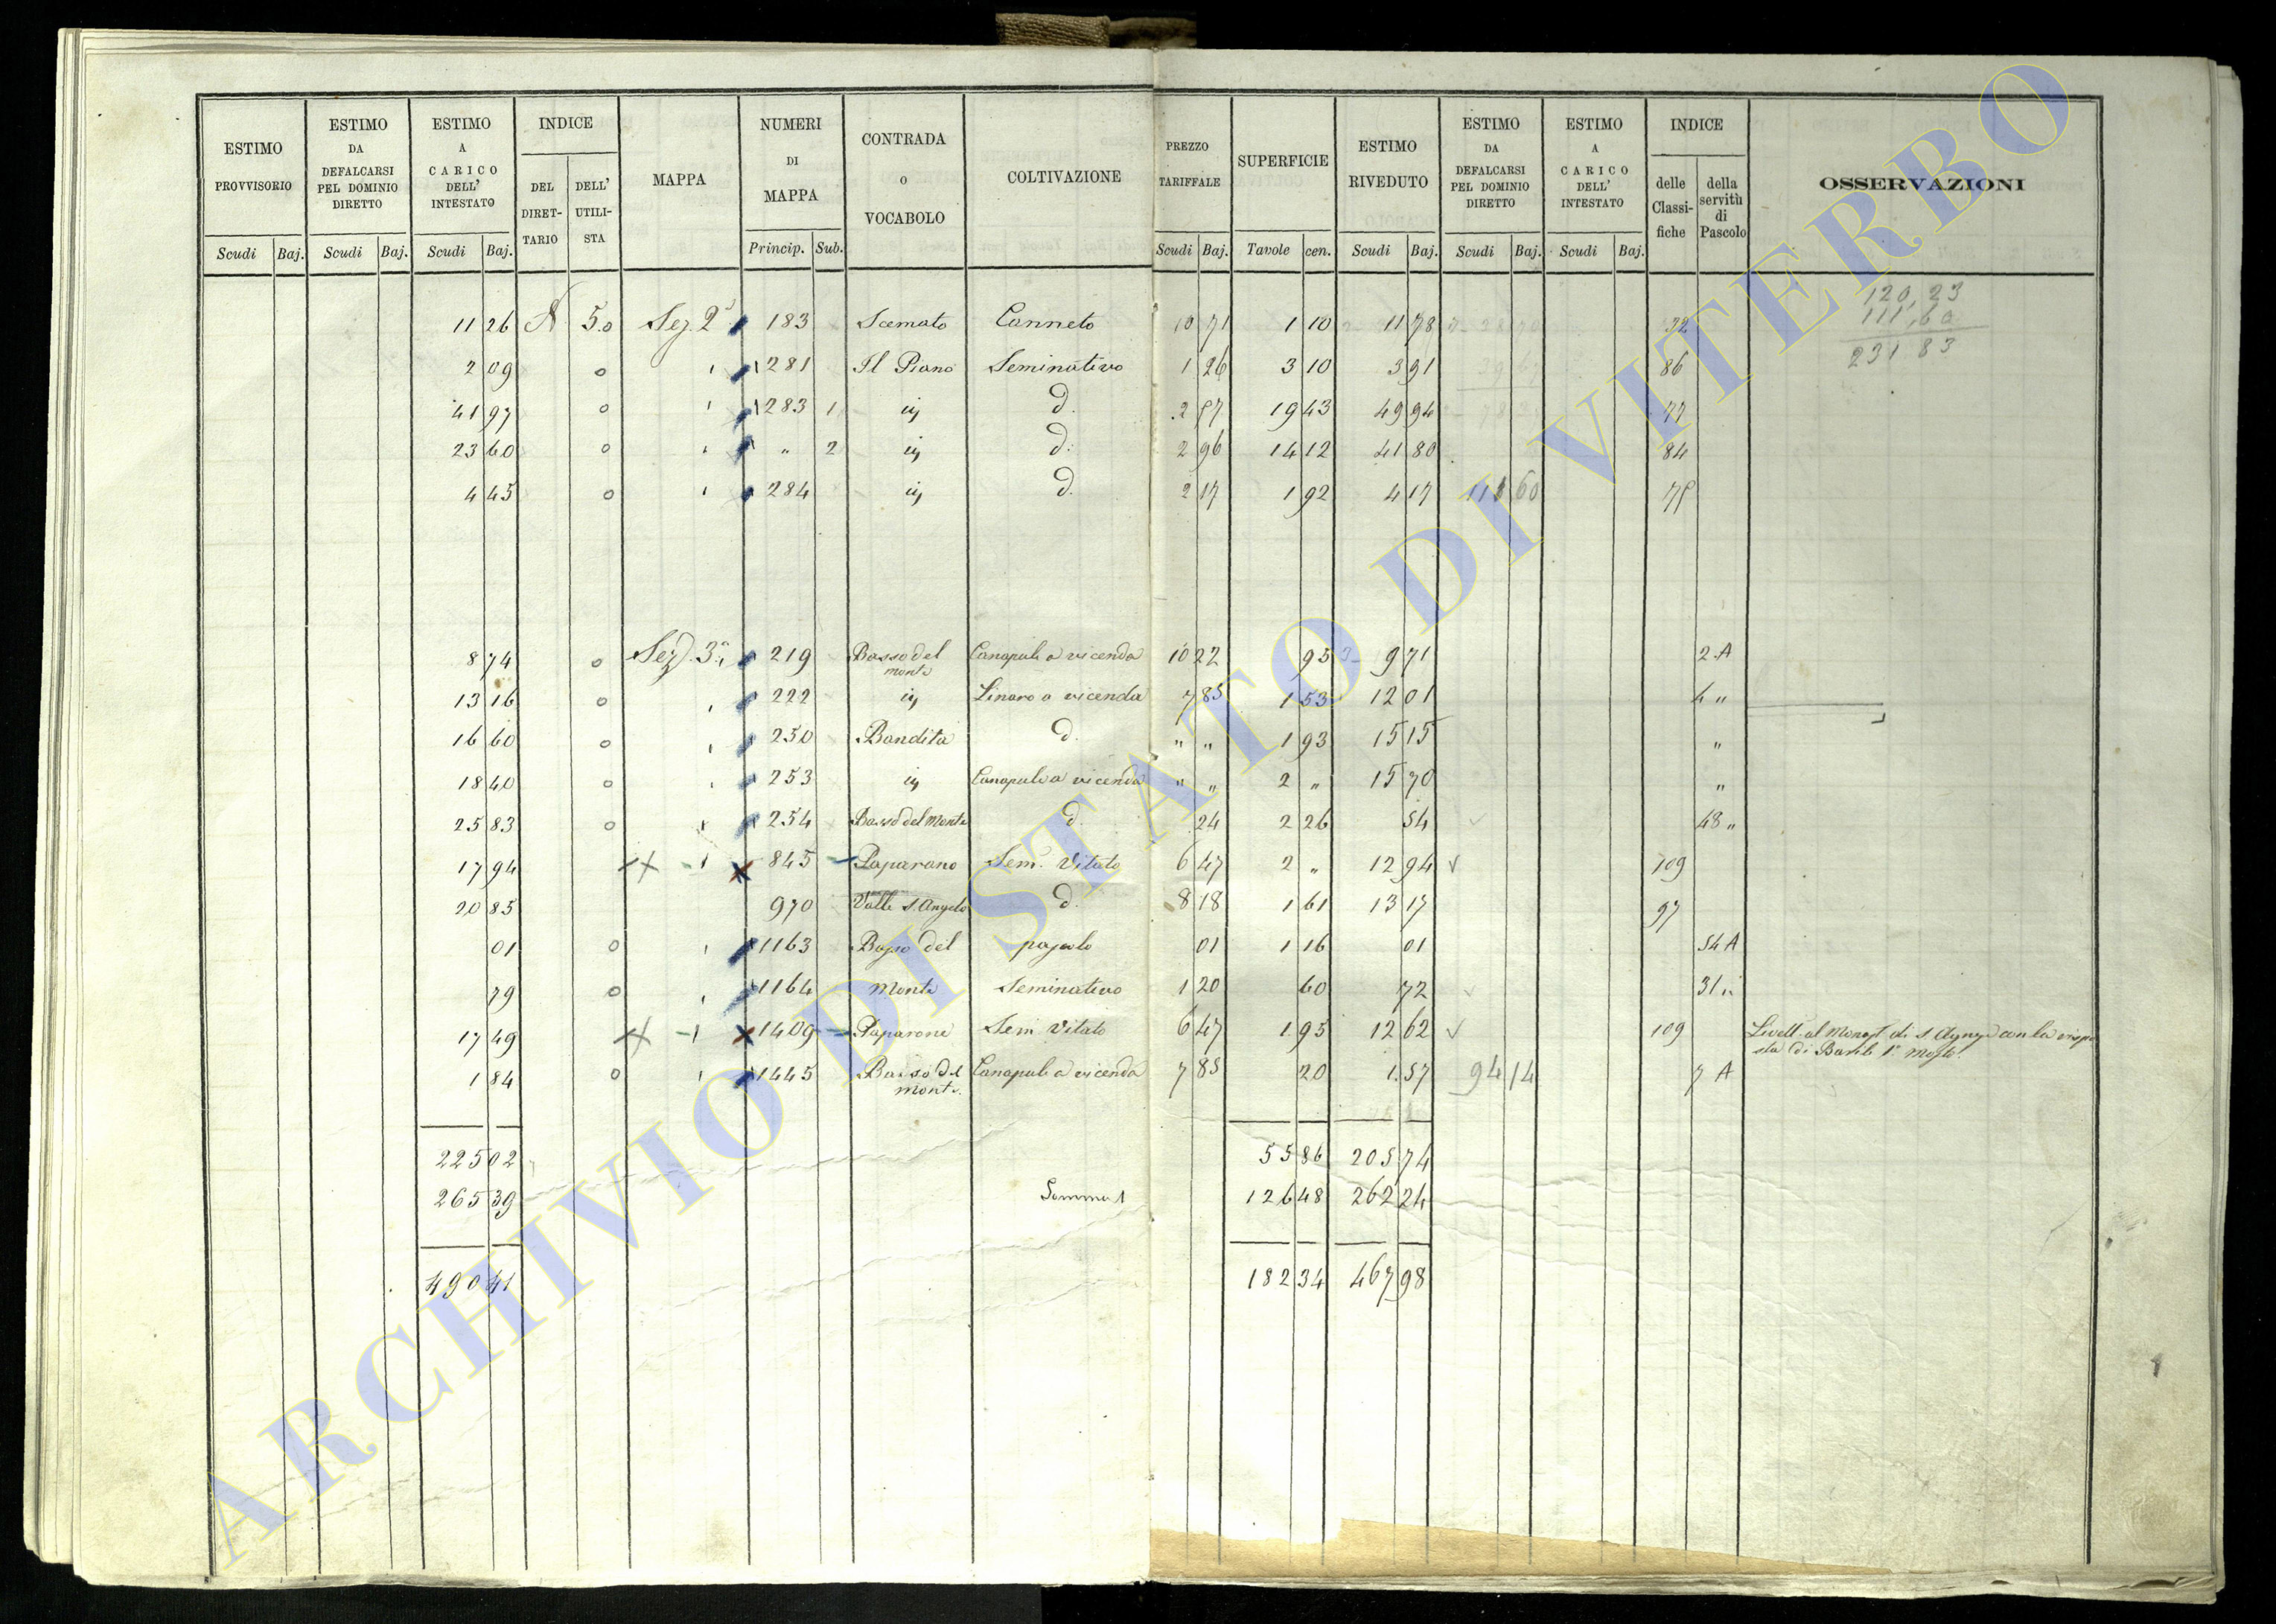 ESTIMO PROVVISORIO Scudi Baj.
ESTIMO DA DEFALCARSI PEL DOMINIO DIRETTO Scudi Baj.
ESTIMO A CARICO DELL' INTESTATO Scudi Baj.
INDICE DEL DIRET- TARIO DELL' UTILI- STA
MAPPA
NUMERI DI MAPPA Princip. Sub.
CONTRADA O VOCABOLO
COLTIVAZIONE
PREZZO TARIFFALE Scudi Baj.
SUPERFICIE Tavole cen.
ESTIMO RIVEDUTO Scudi Baj.
ESTIMO DA DEFALCARSI PEL DOMINIO DIRETTO Scudi Baj.
ESTIMO A CARICO DELL' INTESTATO Scudi Baj.
INDICE delle Classi- fiche della servitù di Pascolo
OSSERVAZIONI
120,23
111,60
231 83
11 26 5.0 Sez. 2ª 183 Scemato Canneto 10 71 1 10 11 78 72
2 09 0 281 Il Piano Seminativo 1 26 3 10 3 91 86
41 97 0 283 1 id d. 2 57 19 43 49 94 77
23 60 0 " 2 id d. 2 96 14 12 41 80 84
4 45 0 284 id d. 2 17 1 92 4 17 111 60 75
8 74 0 Sez. 3ª 219 Basso del monte Canapule a vicenda 10 22 95 9 71 2 A
13 16 0 222 id Linaro a vicenda 7 85 1 53 12 01 4 "
16 60 0 250 Bandita d. " " 1 93 15 15 "
18 40 0 253 id Canapule a vicenda " " 2 " 15 70 "
25 83 0 254 Basso del Monte d. 24 2 26 54 48 "
17 94 845 Paparano Sem. Vitato 6 47 2 " 12 94 109
20 85 970 Valle S. Angelo d. 8 18 1 61 13 17 97
01 0 1163 Basso del pascolo 01 1 16 01 54 A
79 0 1164 Monte Seminativo 1 20 60 72 31 "
17 49 1409 Paparone Sem Vitato 6 47 1 95 12 62 109 Livell. al Monast. di S Agnese con la rispo
sta di Barili 1º Mosto
1 84 0 1445 Basso del monte Canapule a vicenda 7 85 20 1.57 94 14 7 A
225 02 55 86 205 74
265 39 Somma 126 48 262 24
490 41 182 34 467 98
ARCHIVIO DI STATO DI VITERBO